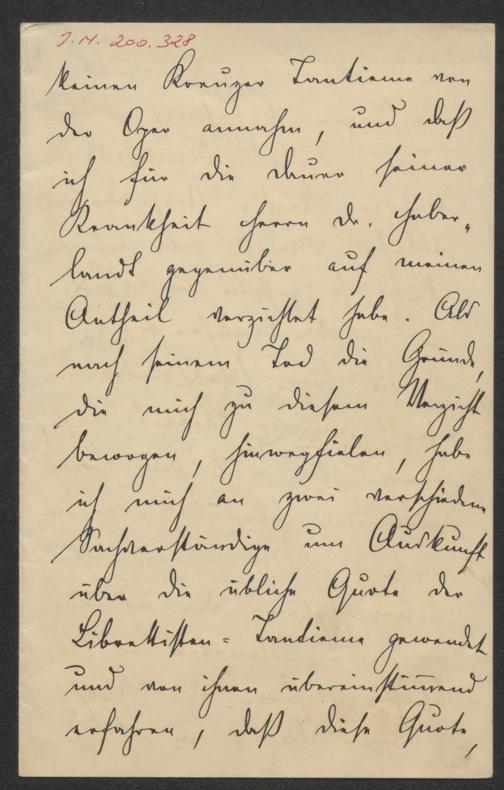 J.N. 200.328
keinen Kreuzer Tantieme von
der Oper annahm, und daß
ich für die Dauer seiner
Krankheit Herrn Dr. Haber-
landt gegenüber auf meinen
Antheil verzichtet habe. Als
nach seinem Tod die Gründe,
die mich zu diesem Verzicht
bewogen, hinwegfielen, habe
ich mich an zwei verschiedene
Sachverständige um Auskunft
über die übliche Quote der
Librettisten-Tantieme gewendet
und von ihnen übereinstimmend
erfahren, daß diese Quote,